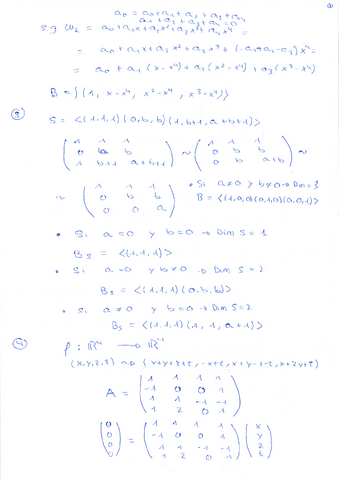 a₀ = a₀+a₁+a₂+a₃+a₄
a₁+a₂+a₃+a₄=0
= a₀+a₁x+a₂x²+a₃x³+a₄x⁴ =
= a₀+a₁x+a₂x²+a₃x³+(-a₁-a₂-a₃)x⁴=
= a₀+a₁(x-x⁴)+a₂(x²-x⁴)+a₃(x³-x⁴)
B = {(1, x-x⁴, x²-x⁴, x³-x⁴)}
③ S = <(1,1,1)(0,b,b)(1,b+1,a+b+1)>
1 1 1
0 b b
1 b+1 a+b+1
~
1 1 1
0 b b
0 b a+b
~
~
1 1 1
0 b b
0 0 a
• Si a≠0 y b≠0 → Dim=3
B = <(1,0,0)(0,1,0)(0,0,1)>
• Si a=0 y b=0 → Dim S=1
B_S = <(1,1,1)>
• Si a=0 y b≠0 → Dim S=2
B_S = <(1,1,1)(0,b,b)>
• Si a≠0 y b=0 → Dim S=2
B_S = <(1,1,1)(1,1,a+1)>
④ f: ℝ⁴ → ℝ⁴
A =
1 1 1 1
-1 0 0 1
1 1 -1 -1
1 2 0 1
0
0
0
0
=
1 1 1 1
-1 0 0 1
1 1 -1 -1
1 2 0 1
x
y
z
t